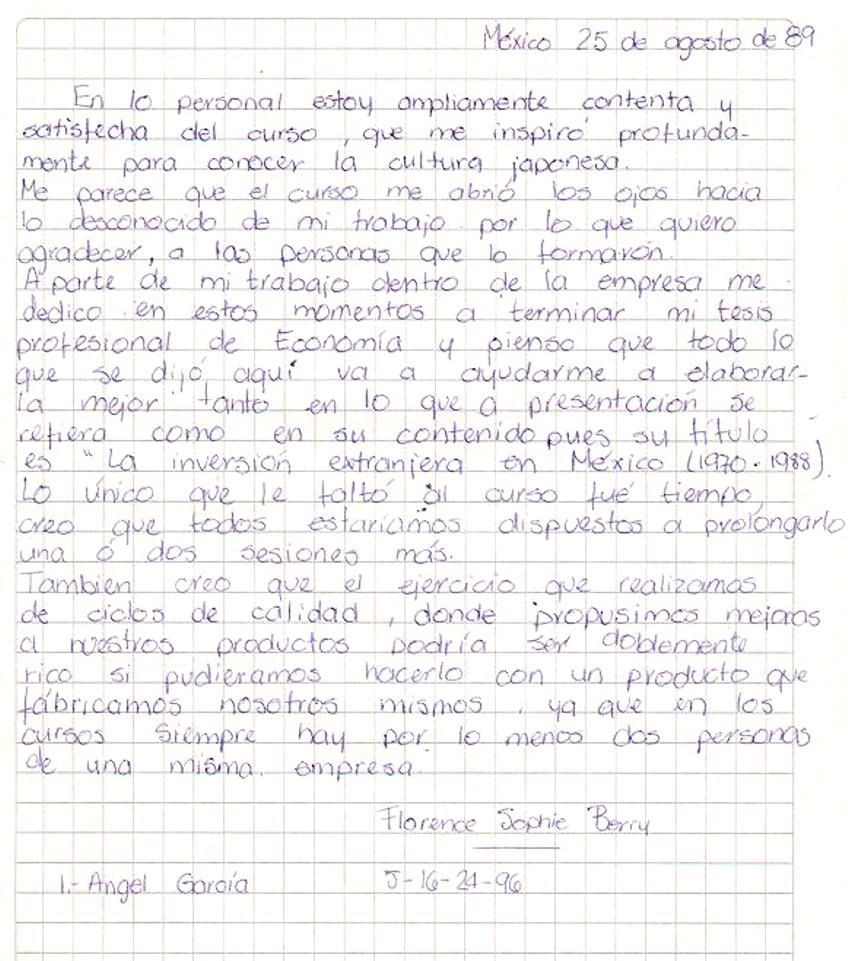 México 25 de agosto de 89
En lo personal estoy ampliamente contenta y
satisfecha del curso, que me inspiró profunda-
mente para conocer la cultura japonesa.
Me parece que el curso me abrió los ojos hacia
lo desconocido de mi trabajo por lo que quiero
agradecer, a las personas que lo formarón.
A parte de mi trabajo dentro de la empresa me
dedico en estos momentos a terminar mi tesis
profesional de Economía y pienso que todo lo
que se dijó aquí va a ayudarme a elaborar-
la mejor tanto en lo que a presentación se
refiera como en su contenido pues su título
es "La inversión extranjera en México (1970-1988).
Lo único que le faltó al curso fué tiempo,
creo que todos estaríamos dispuestos a prolongarlo
una ó dos sesiones más.
Tambien creo que el ejercicio que realizamos
de ciclos de calidad, donde propusimos mejoras
a nuestros productos podría ser doblemente
rico si pudieramos hacerlo con un producto que
fábricamos nosotros mismos, ya que en los
cursos siempre hay por lo menos dos personas
de una misma empresa.
Florence Sophie Berry
1.- Angel García 5-16-24-96